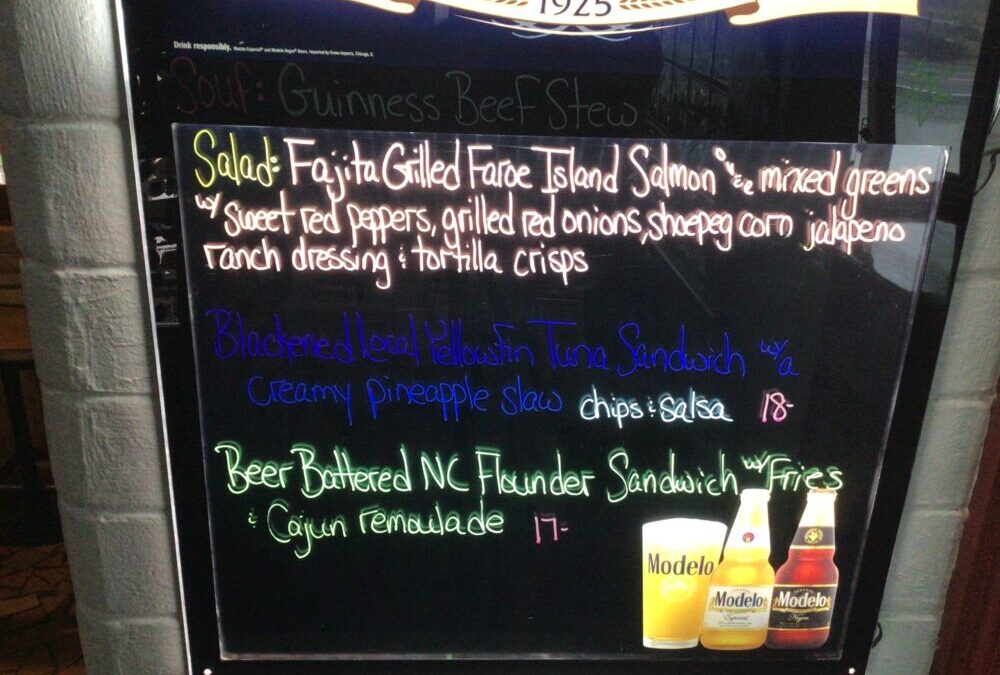 1925
Drink responsibly.
Soup: Guinness Beef Stew
Salad: Fajita Grilled Faroe Island Salmon over mixed greens
w/ sweet red peppers, grilled red onions, shoepeg corn jalapeno
ranch dressing & tortilla crisps
Blackened Local Yellowfin Tuna Sandwich w/a
creamy pineapple slaw chips & salsa 18-
Beer Battered NC Flounder Sandwich w/ Fries
& Cajun remoulade 17-
Modelo
Modelo Modelo
Especial Negra